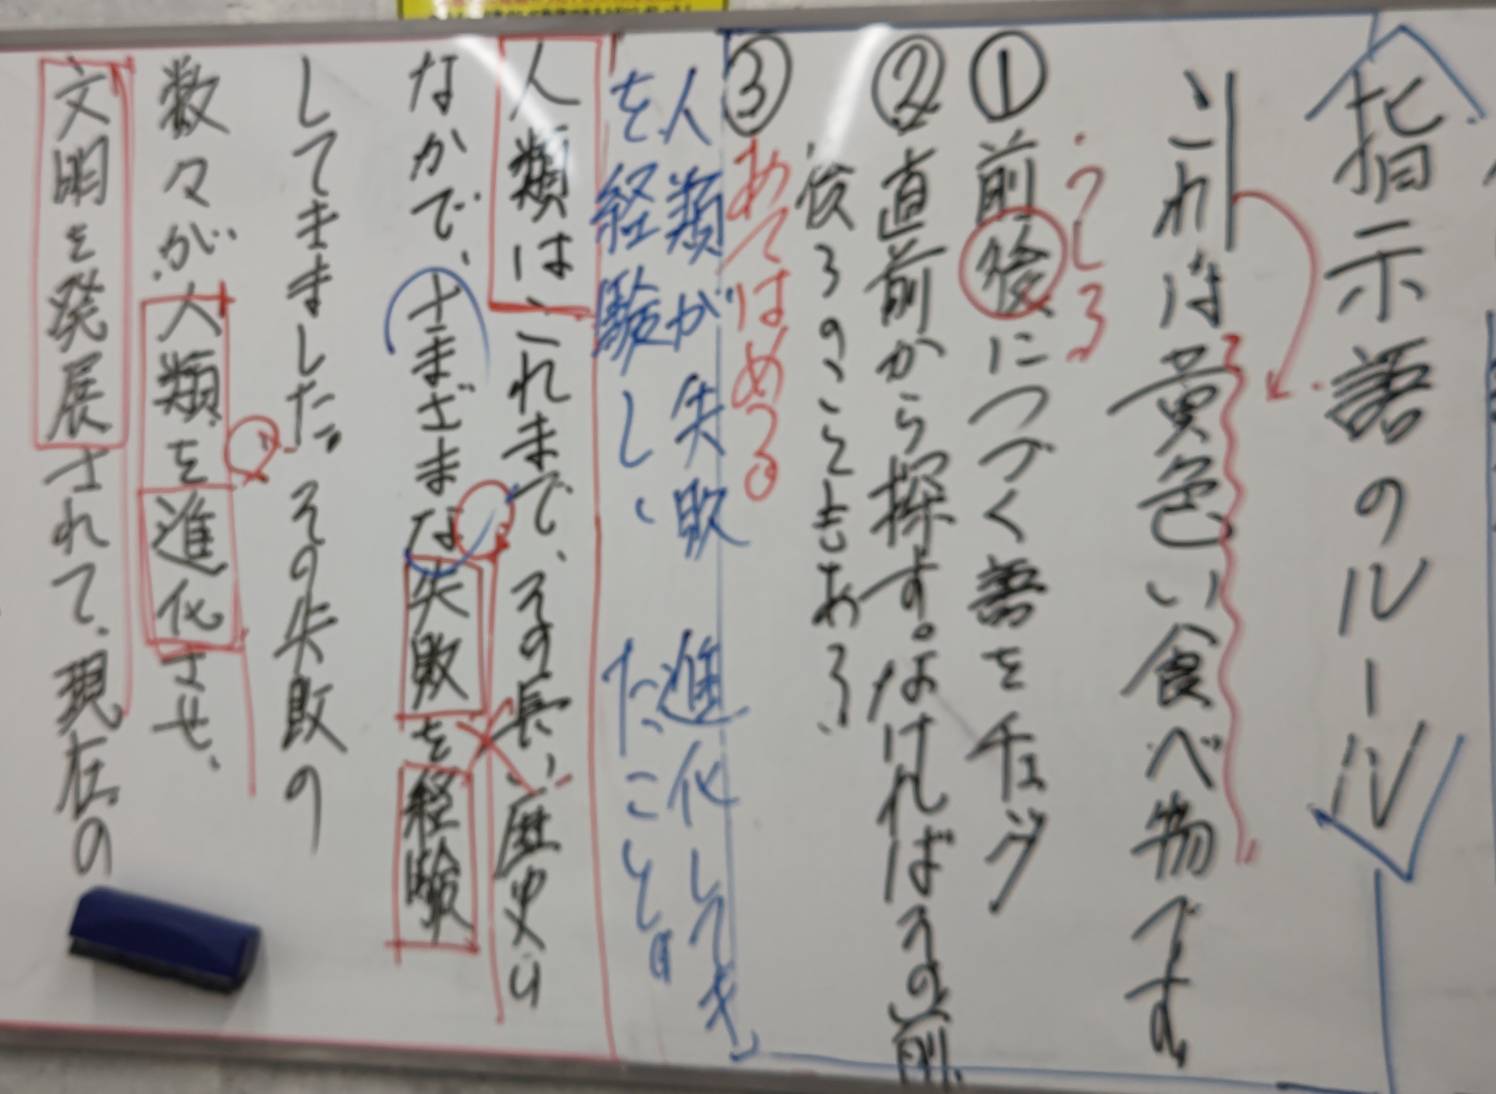 指示語のルール
これは黄色い食べ物です
うしろ
①前後につづく語をチェック
②直前から探す。なければその前、
後ろのこともある、
③あてはめる
人類が失敗 進化してき
を経験し、 たこと。
人類はこれまで、その長い歴史の
なかで、さまざまな失敗を経験
してきました。その失敗の
数々が、人類を進化させ、
文明を発展されて、現在の